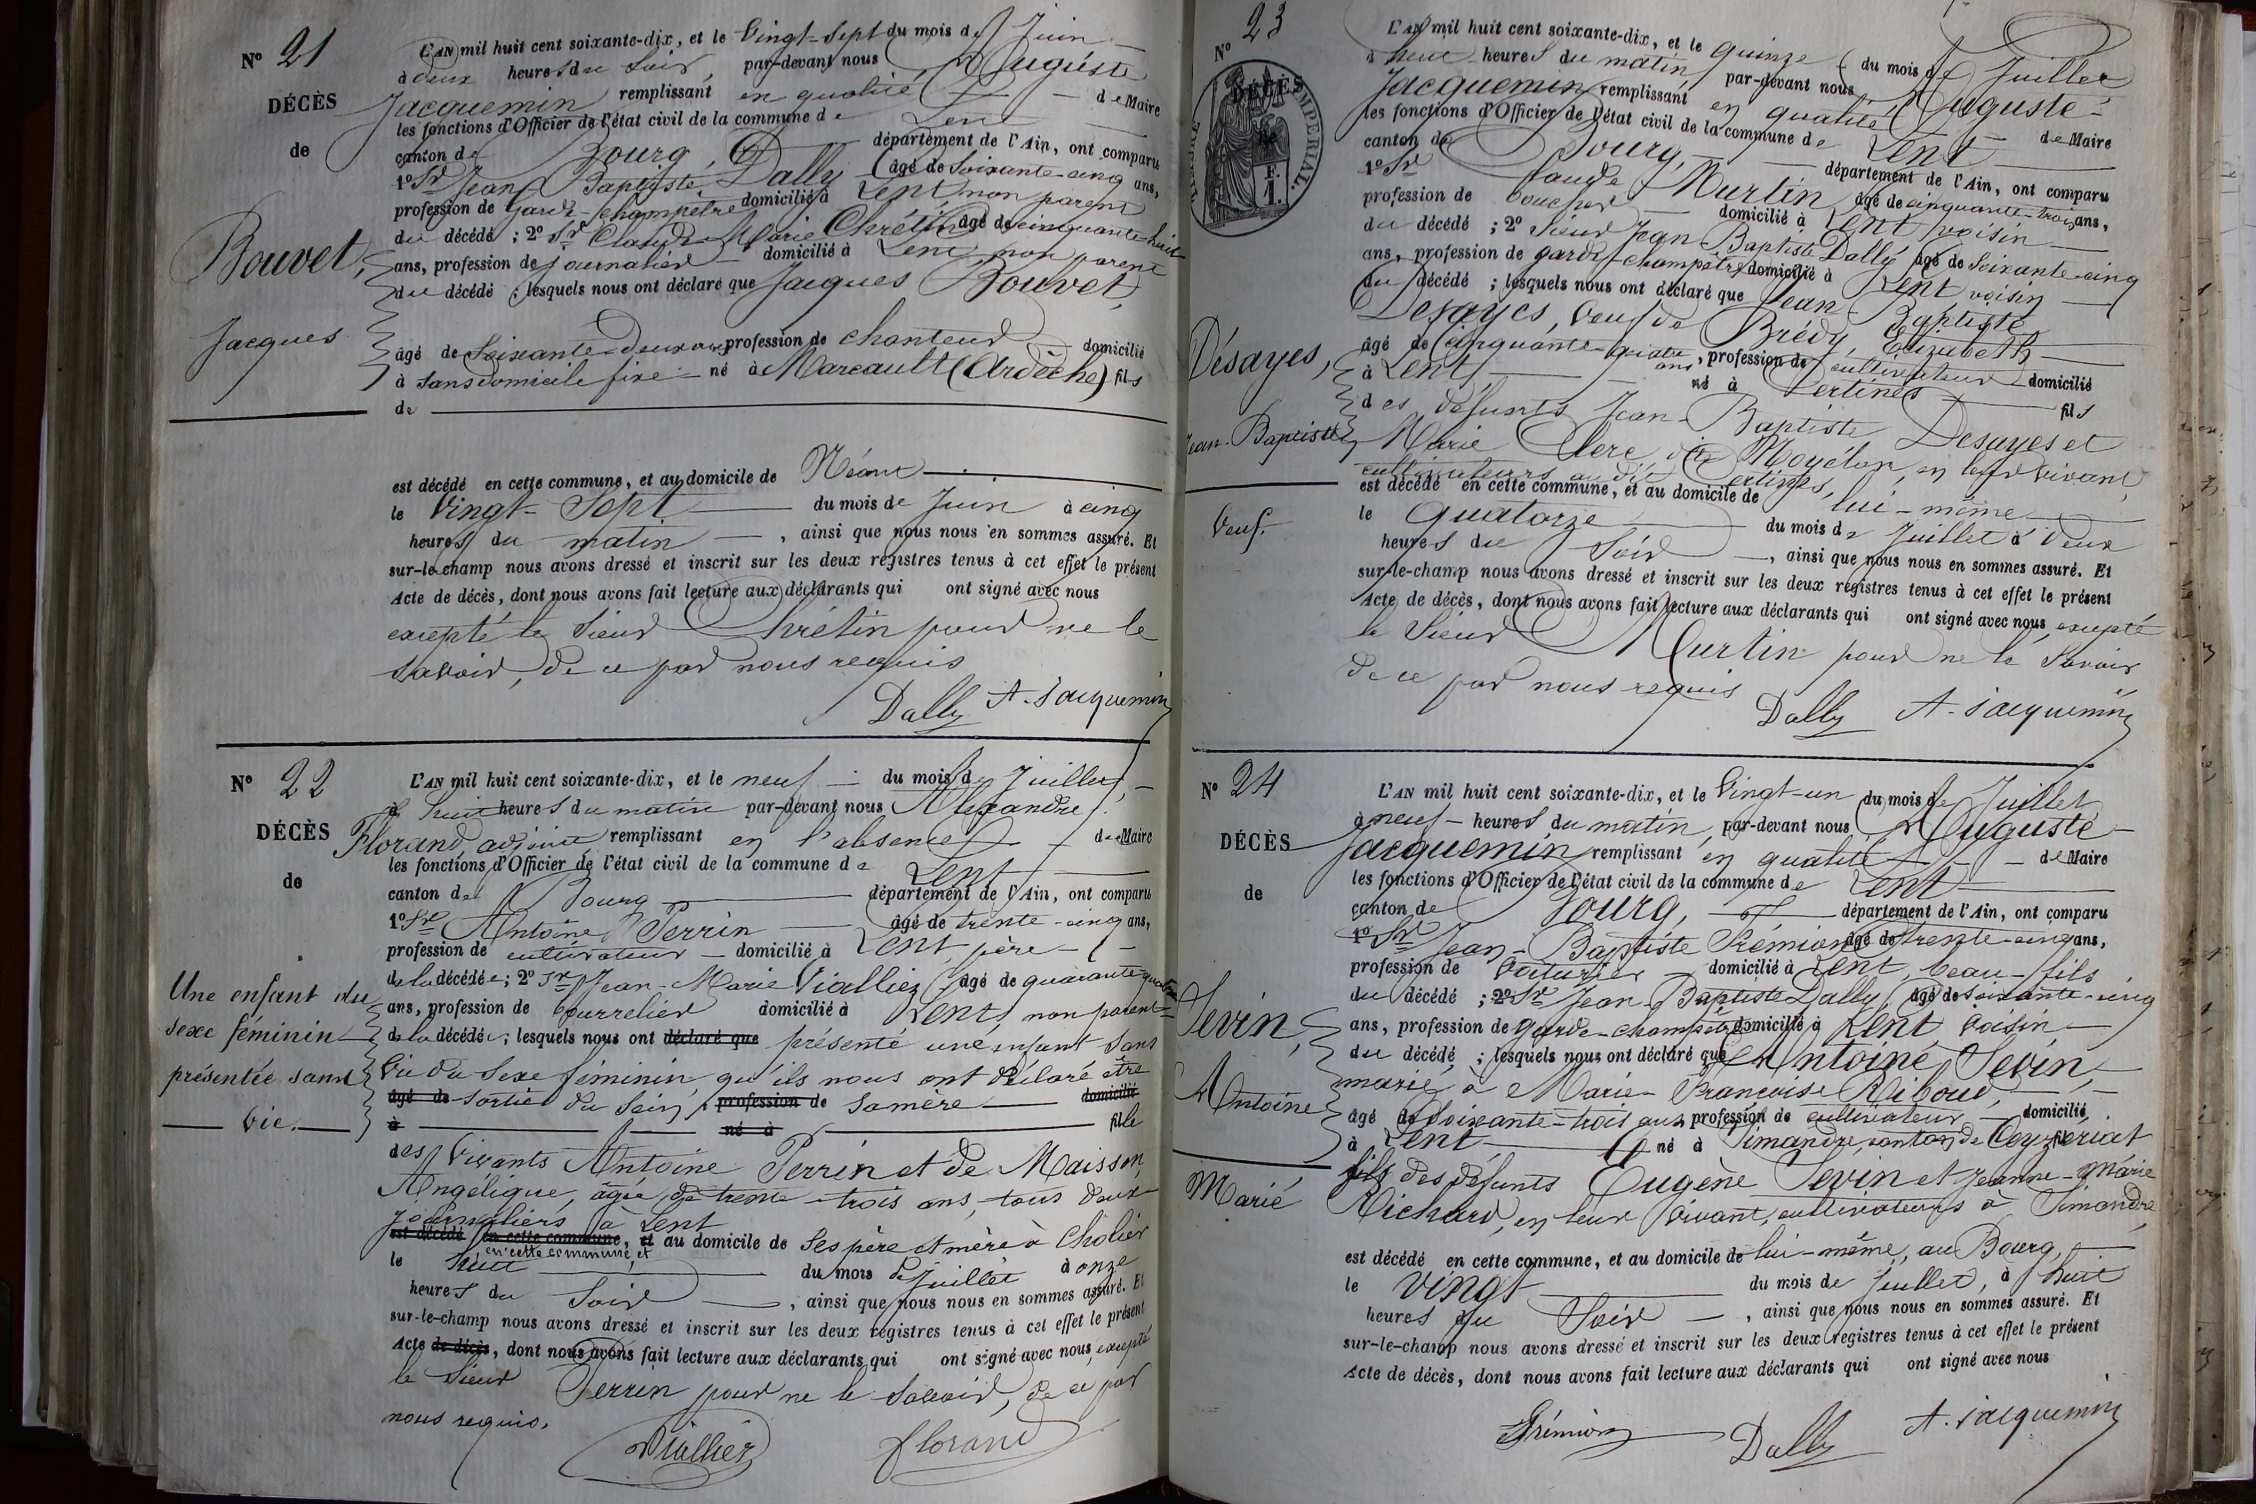 N° 21
DÉCÈS
de
Bouvet,
Jacques
L'AN mil huit cent soixante-dix, et le Vingt-Sept du mois de Juin
à deux heures du soir, par-devant nous Auguste
Jacquemin remplissant en qualité de Maire
les fonctions d'Officier de l'état civil de la commune de Lent
canton de Bourg, département de l'Ain, ont comparu
1° Sr Jean Baptiste Dally âgé de Soixante-cinq ans,
profession de Garde-champêtre domicilié à Lent, non parent
du décédé ; 2° Sr Claude Marie Chrétin âgé de cinquante-huit
ans, profession de journalier domicilié à Lent, non parent
du décédé ; lesquels nous ont déclaré que Jacques Bouvet,
âgé de Soixante-deux ans, profession de chanteur domicilié
à sans domicile fixe né à Marcault (Ardèche) fils
de
est décédé en cette commune, et au domicile de Néant
le Vingt-Sept du mois de Juin à cinq
heures du matin, ainsi que nous nous en sommes assuré. Et
sur-le-champ nous avons dressé et inscrit sur les deux registres tenus à cet effet le présent
Acte de décès, dont nous avons fait lecture aux déclarants qui ont signé avec nous
excepté le Sieur Chrétin pour ne le
savoir, de ce par nous requis
Dally A. Jacquemin
N° 22
DÉCÈS
de
Une enfant du
sexe féminin
présentée sans
vie.
L'AN mil huit cent soixante-dix, et le neuf du mois de Juillet,
à huit heures du matin par-devant nous Alexandre
Florand, adjoint remplissant en l'absence du Maire
les fonctions d'Officier de l'état civil de la commune de Lent
canton de Bourg département de l'Ain, ont comparu
1° Sr Antoine Perrin âgé de trente-cinq ans,
profession de cultivateur domicilié à Lent, père
de la décédée ; 2° Sr Jean-Marie Vialliez âgé de quarante-quatre
ans, profession de bourrelier domicilié à Lent, non parent
de la décédée ; lesquels nous ont déclaré que présenté une enfant sans
vie du sexe féminin qu'ils nous ont déclaré être
âgé de sortie du sein, profession de sa mère domicilié
à né à fille
des vivants Antoine Perrin et de Maisson
Angélique, âgée de trente-trois ans, tous deux
journaliers à Lent
est décédé en cette commune, et au domicile de ses père et mère à Cholier
en cette commune, et
le huit du mois de Juillet à onze
heures du Soir, ainsi que nous nous en sommes assuré. Et
sur-le-champ nous avons dressé et inscrit sur les deux registres tenus à cet effet le présent
Acte de décès, dont nous avons fait lecture aux déclarants qui ont signé avec nous, excepté
le Sieur Perrin pour ne le Savoir, de ce par
nous requis.
Viallier Florand
N° 23
DÉCÈS
de
IMPERIAL.
F.
1.
Désayes,
Jean-Baptiste
Veuf.
L'AN mil huit cent soixante-dix, et le quinze du mois de Juillet
à heures du matin par-devant nous Auguste
Jacquemin remplissant en qualité de Maire
les fonctions d'Officier de l'état civil de la commune de Lent
canton de Bourg, département de l'Ain, ont comparu
1° Sr Claude Murtin âgé de cinquante-trois ans,
profession de boucher domicilié à Lent, voisin
du décédé ; 2° Sieur Jean-Baptiste Dally âgé de Soixante-cinq
ans, profession de garde-champêtre domicilié à Lent voisin
du décédé ; lesquels nous ont déclaré que Jean-Baptiste
Desayes, Veuf de Brédy, Elizabeth
âgé de Cinquante-quatre ans, profession de cultivateur domicilié
à Lent, né à Certines fils
des défunts Jean-Baptiste Desayes et
Marie Clerc, dite Moyélon, en leur vivant,
cultivateurs au dit Certines,
est décédé en cette commune, et au domicile de lui-même
le quatorze du mois de Juillet à Deux
heures du Soir, ainsi que nous nous en sommes assuré. Et
sur-le-champ nous avons dressé et inscrit sur les deux registres tenus à cet effet le présent
Acte de décès, dont nous avons fait lecture aux déclarants qui ont signé avec nous, excepté
le Sieur Murtin pour ne le Savoir
de ce par nous requis
Dally A. Jacquemin
N° 24
DÉCÈS
de
Sevin,
Antoine
Marié
L'AN mil huit cent soixante-dix, et le Vingt-un du mois de Juillet
à neuf heures du matin, par-devant nous Auguste
Jacquemin remplissant en qualité de Maire
les fonctions d'Officier de l'état civil de la commune de Lent
canton de Bourg, département de l'Ain, ont comparu
1° Sr Jean-Baptiste Frémion âgé de trente-cinq ans,
profession de voiturier domicilié à Lent, beau-fils
du décédé ; 2° Sr Jean-Baptiste Dally, âgé de soixante-cinq
ans, profession de garde-champêtre domicilié à Lent voisin
du décédé ; lesquels nous ont déclaré que Antoine Sevin,
marié à Marie-Françoise Riboud,
âgé de Soixante-trois ans profession de cultivateur domicilié
à Lent né à Simandre, canton de Ceyzériat
fils des défunts Eugène Sevin et Jeanne-Marie
Richard, en leur vivant, cultivateurs à Simandre,
est décédé en cette commune, et au domicile de lui-même, au Bourg,
le Vingt du mois de Juillet, à huit
heures du Soir, ainsi que nous nous en sommes assuré. Et
sur-le-champ nous avons dressé et inscrit sur les deux registres tenus à cet effet le présent
Acte de décès, dont nous avons fait lecture aux déclarants qui ont signé avec nous
Frémion Dally A. Jacquemin